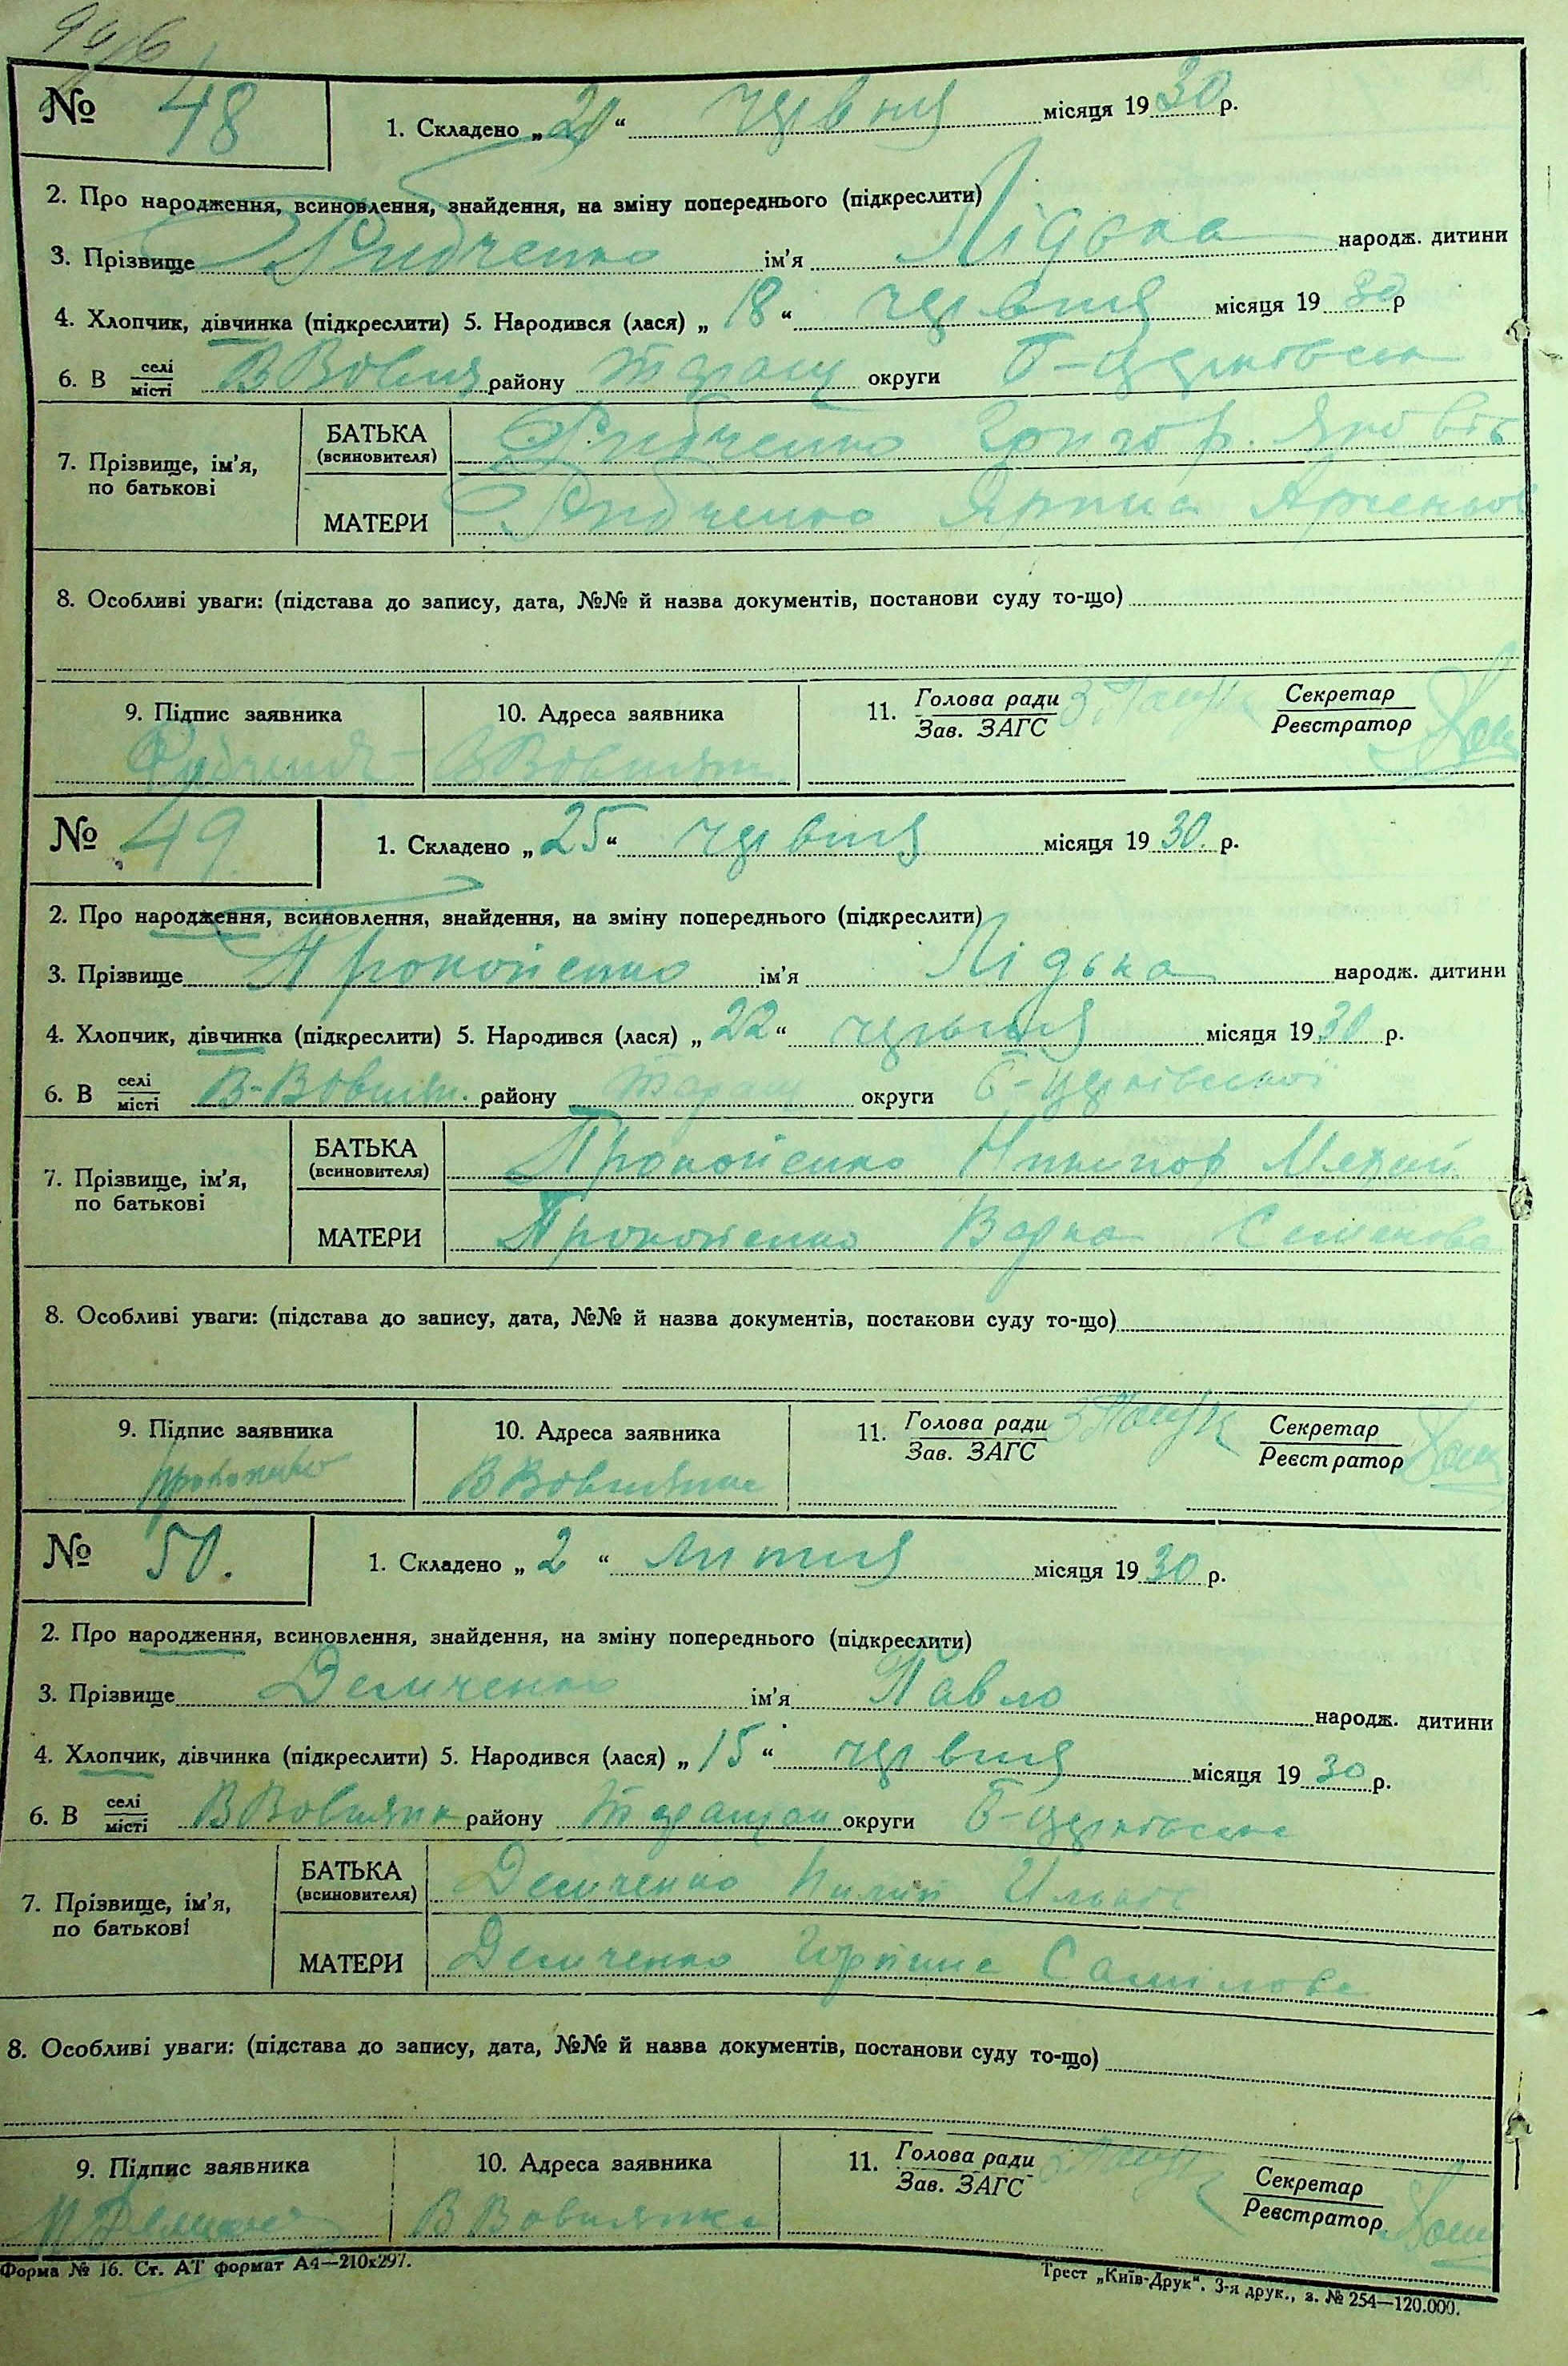 № 48
1. Складено „20“ червня місяця 1930 р.
2. Про народження, всиновлення, знайдення, на зміну попереднього (підкреслити)
3. Прізвище Рибченко ім'я Лідька народж. дитини
4. Хлопчик, дівчинка (підкреслити) 5. Народився (лася) „18“ червня місяця 1930 р
6. В селі місті В Вовня району Таращ округи Б-Церковськ
7. Прізвище, ім'я, по батькові
БАТЬКА (всиновителя) Рибченко Григор. Яковів
МАТЕРИ Рибченко
8. Особливі уваги: (підстава до запису, дата, №№ й назва документів, постанови суду то-що)
9. Підпис заявника
10. Адреса заявника
11. Голова ради Зав. ЗАГС
Секретар Реєстратор
№ 49.
1. Складено „25“ червня місяця 1930. р.
2. Про народження, всиновлення, знайдення, на зміну попереднього (підкреслити)
3. Прізвище Прокопенко ім'я Лідька народж. дитини
4. Хлопчик, дівчинка (підкреслити) 5. Народився (лася) „22“ червня місяця 1930 р.
6. В селі місті В-Вовнян. району Таращ округи Б-Церківської
7. Прізвище, ім'я, по батькові
БАТЬКА (всиновителя) Прокопенко Никипор
МАТЕРИ Прокопенко Варка Семенова
8. Особливі уваги: (підстава до запису, дата, №№ й назва документів, постанови суду то-що)
9. Підпис заявника Прокопенко
10. Адреса заявника В Вовнянка
11. Голова ради Зав. ЗАГС
Секретар Реєстратор
№ 50.
1. Складено „2“ липня місяця 1930 р.
2. Про народження, всиновлення, знайдення, на зміну попереднього (підкреслити)
3. Прізвище Демченко ім'я Павло народж. дитини
4. Хлопчик, дівчинка (підкреслити) 5. Народився (лася) „15“ червня місяця 1930 р.
6. В селі місті В Вовнянк району Таращан округи Б-Церківська
7. Прізвище, ім'я, по батькові
БАТЬКА (всиновителя) Демченко Пилип Ильків
МАТЕРИ Демченко Горпина Самілова
8. Особливі уваги: (підстава до запису, дата, №№ й назва документів, постанови суду то-що)
9. Підпис заявника
10. Адреса заявника В Вовнянка
11. Голова ради Зав. ЗАГС
Секретар Реєстратор
Форма № 16. Ст. АТ формат А4—210х297.
Трест „Київ-Друк“. 3-я друк., з. № 254—120.000.